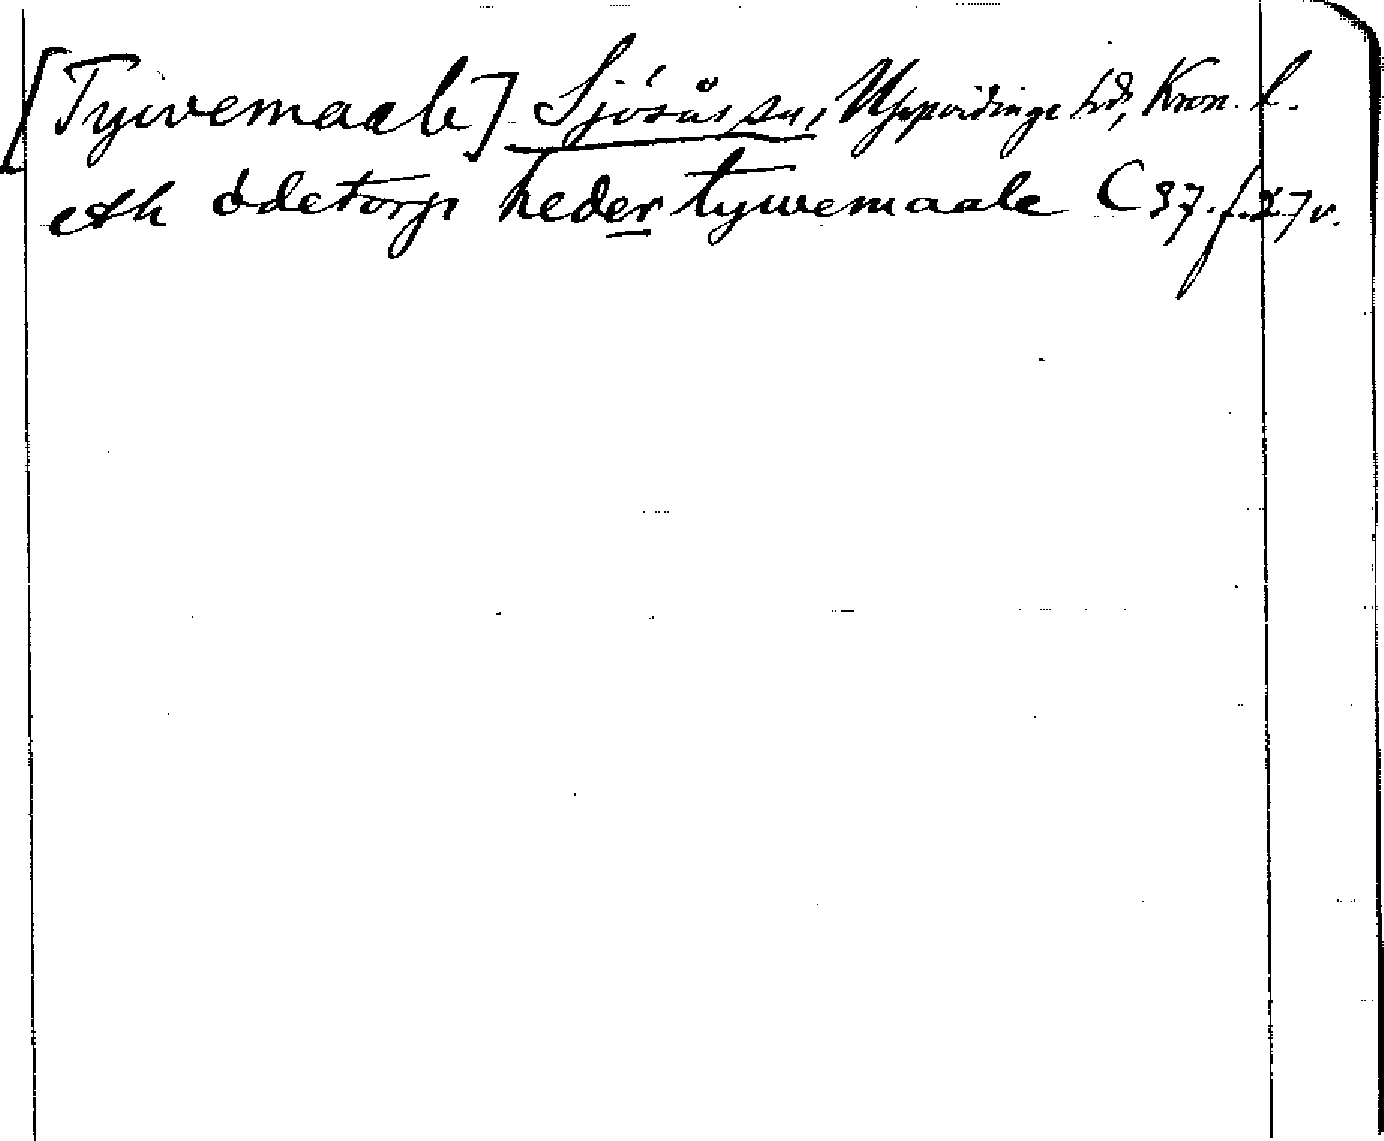 [Tywemaale] Sjösås sn, Uppvidinge hd, Kron. l.
eth ödetorp heder tywemaale C 37. f. 27 v.